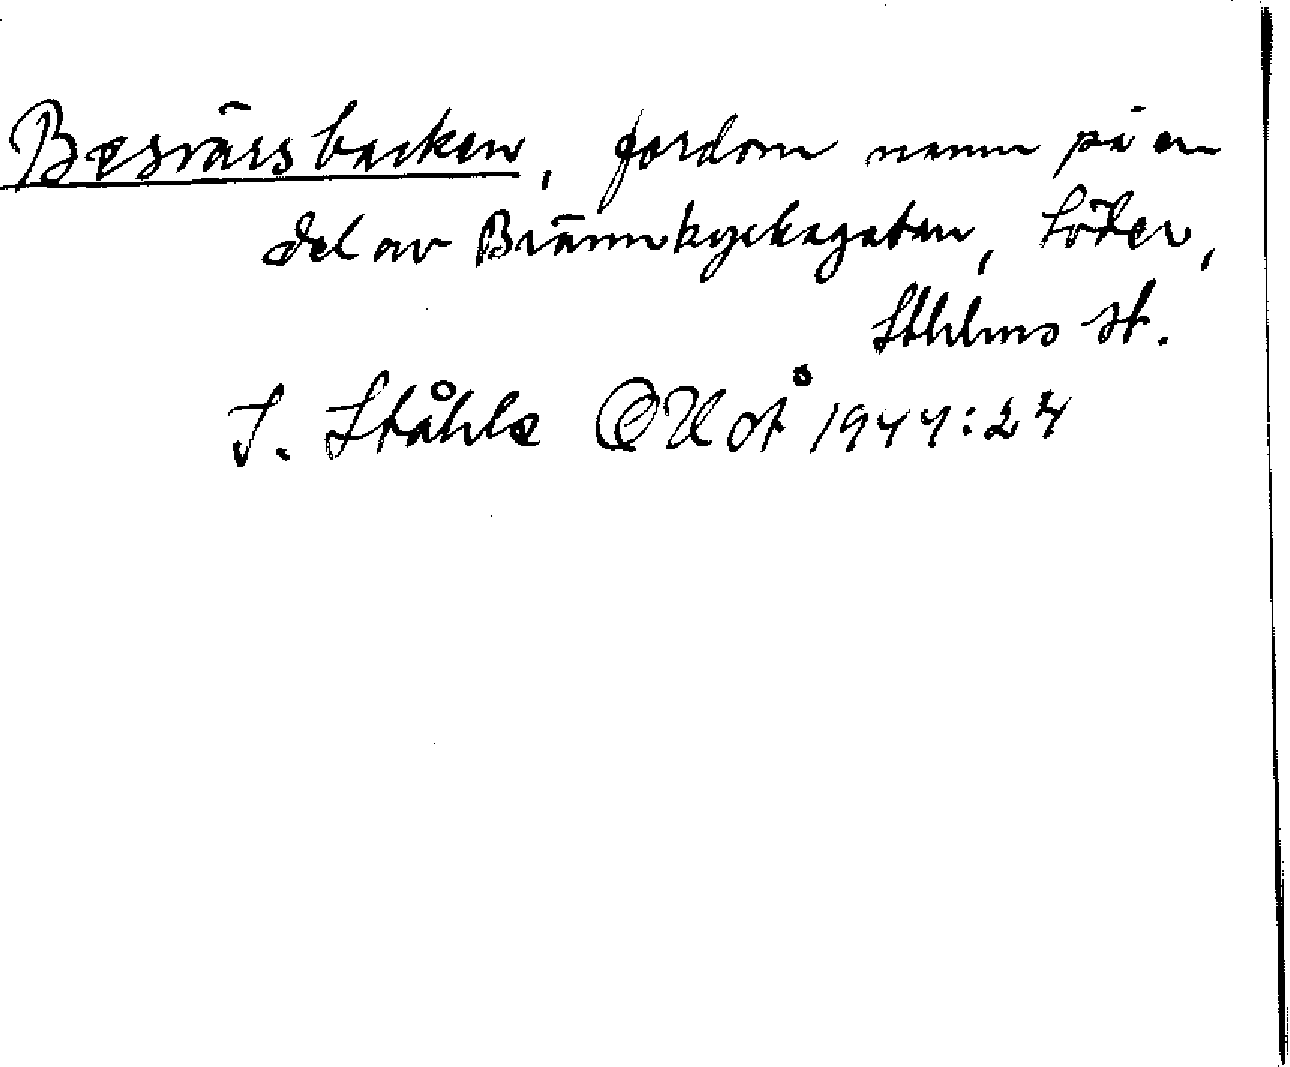 Besvärsbacken, fordom namn på en
del av Brännkyrkagatan, Söder,
Sthlms st.
J. Ståhle OUÅ 1944:24